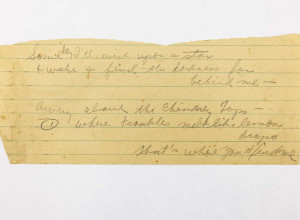 Someday I'll wish upon a star
& wake & find the darkness far
behind me —
Away above the Chimney Tops —
① where troubles melt like lemon
drops
that's where you'll find me